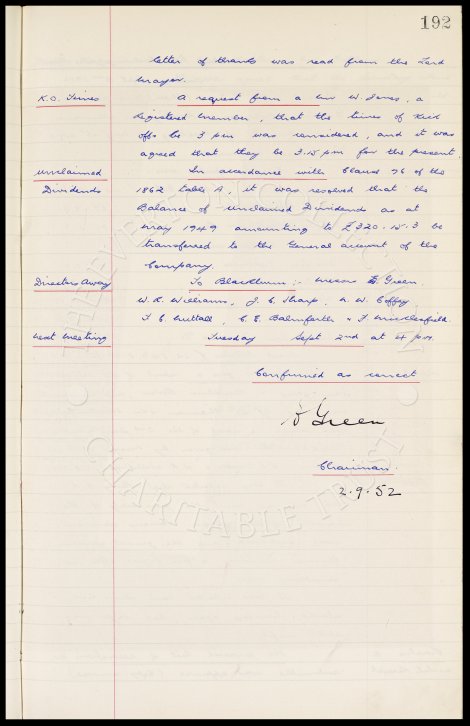 192
letter of thanks was read from the Lord
Mayor.
K.O. Times
A request from a Mr W. Jones, a
registered member, that the times of Kick
offs be 3 pm was considered, and it was
agreed that they be 3.15 pm for the present
Unclaimed
Dividends
In accordance with Clause 76 of the
1862 Table A, it was resolved that the
Balance of Unclaimed Dividends as at
May 1949 amounting to £320.15.3 be
transferred to the General account of the
Company.
Directors Away
To Blackburn :- Messrs D. Green.
W. R. Williams, J. C. Sharp, N. W. Coffey,
T. C. Nuttall C. E. Balmforth & F. Micklesfield.
Next Meeting
Tuesday Sept 2nd at 4 pm.
Confirmed as correct
D Green
Chairman.
2.9.52
THE EVERTON COLLECTION
CHARITABLE TRUST